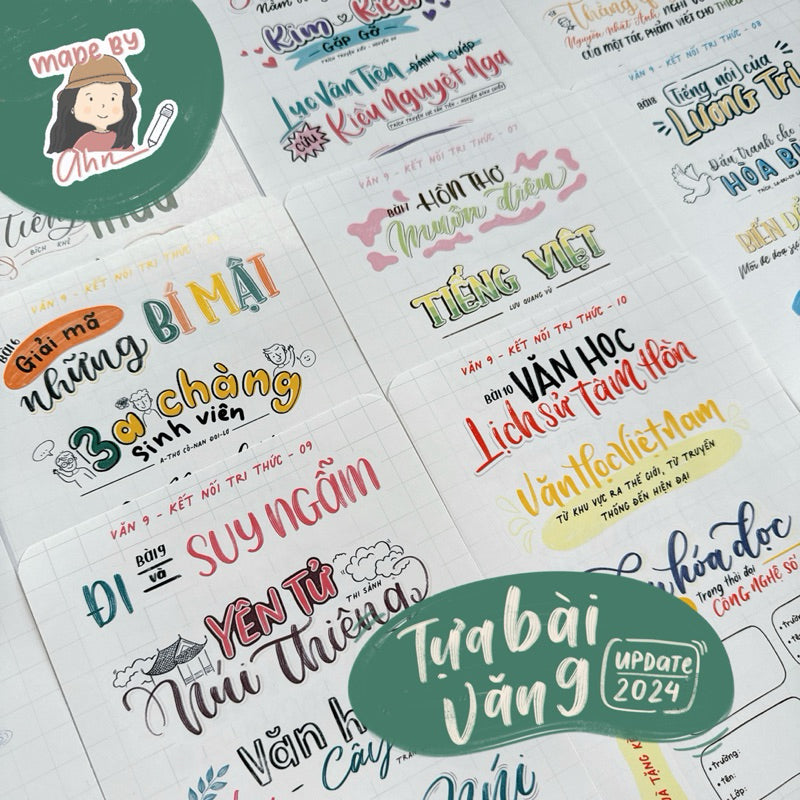 mape by
ahn
Kim Kiều
GẶP GỠ
Lục Vân Tiên ĐÁNH CƯỚP
CỨU Kiều Nguyệt Nga
Nguyễn Nhật Ánh,
CỦA MỘT TÁC PHẨM VIẾT CHO THIẾU
VĂN 9 - KẾT NỐI TRI THỨC - 07
BÀI 7 HỒN THƠ
muôn điệu
TIẾNG VIỆT
LƯU QUANG VŨ
BÀI 8 Tiếng nói của
LƯƠNG TRI
Đấu tranh cho
HÒA BÌ
BIẾN ĐỔ
Tiếng
BÍCH KHÊ
VĂN 9 - KẾT NỐI TRI THỨC
BÀI 6
Giải mã
những BÍ MẬT
3 chàng
sinh viên
A-THƠ CÔ-NAN ĐOI-LƠ
VĂN 9 - KẾT NỐI TRI THỨC - 10
BÀI 10 VĂN HỌC
Lịch sử tâm hồn
Văn Học Việt Nam
TỪ KHU VỰC RA THẾ GIỚI, TỪ TRUYỀN
THỐNG ĐẾN HIỆN ĐẠI
hóa đọc
Trong thời đại
CÔNG NGHỆ SỐ
VĂN 9 - KẾT NỐI TRI THỨC - 09
ĐI BÀI 9 và SUY NGẪM
YÊN TỬ
THI SẢNH
Núi Thiêng
Văn h
Cây
Núi
Tựa bài
văn 9
UPDATE
2024
• Trường:
• Tên:
• Lớp: